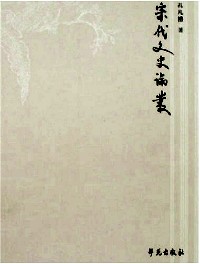 宋代文史论丛
孔凡礼 著
学苑出版社